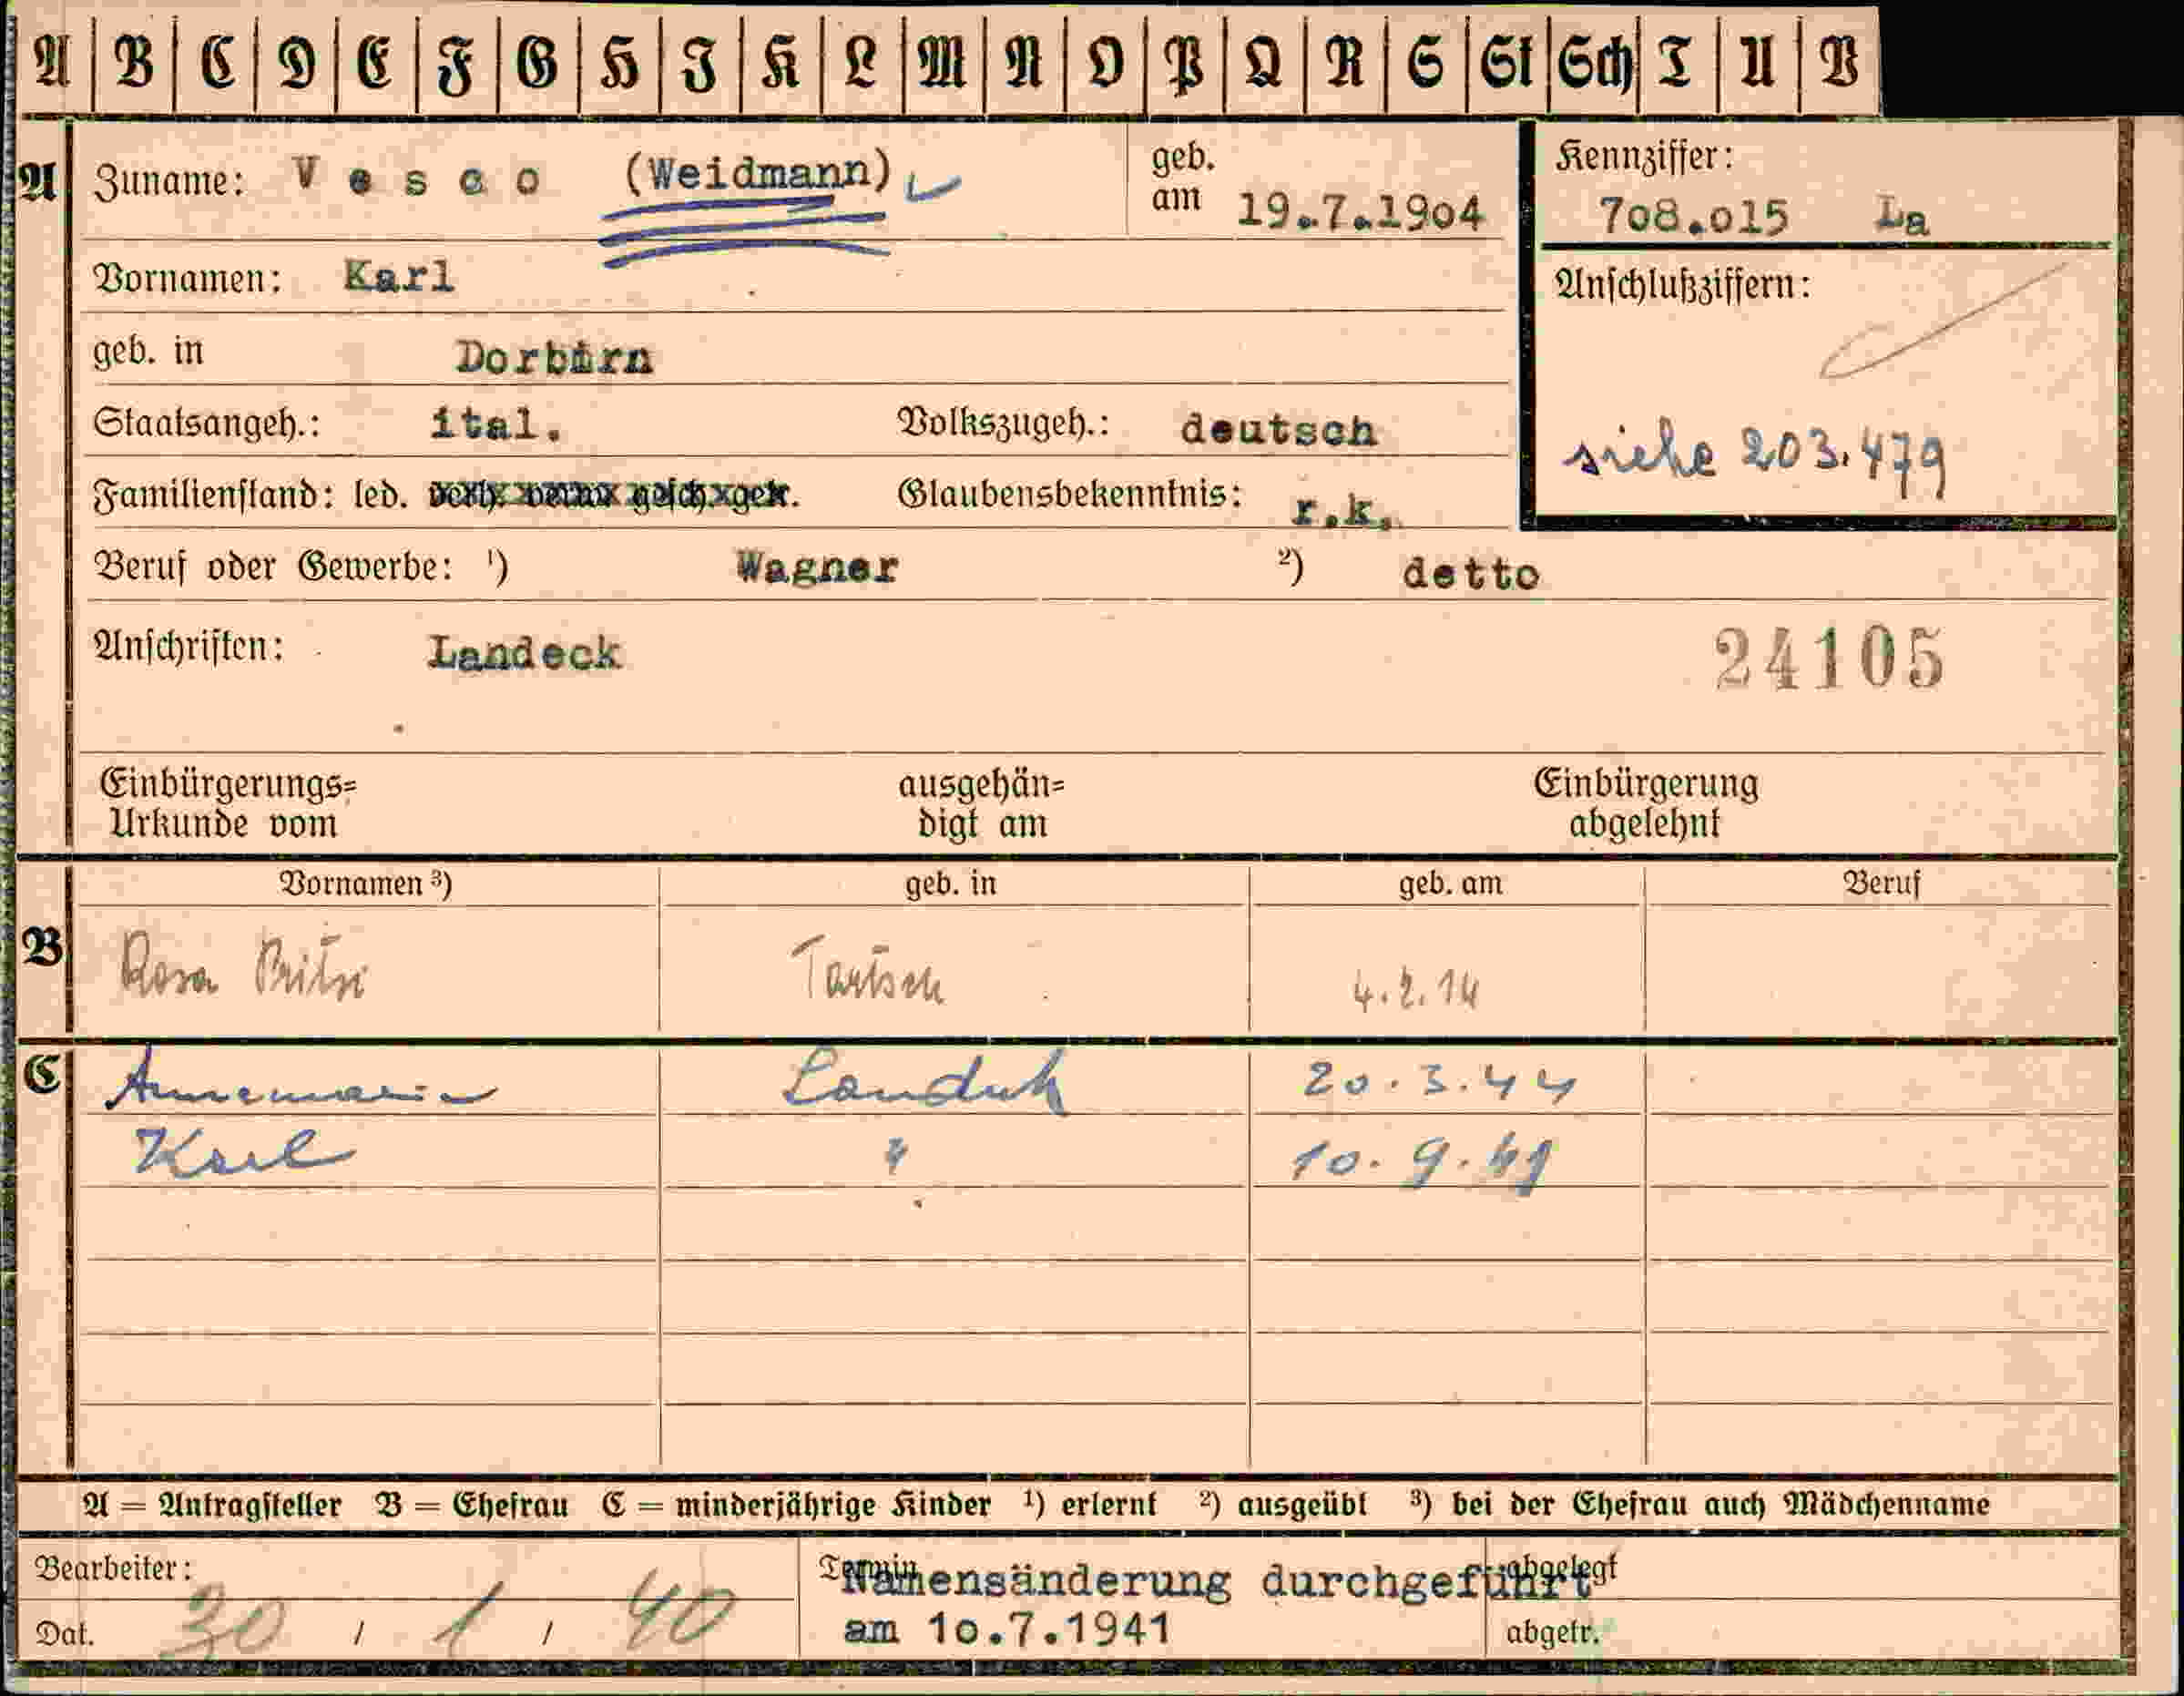 A B C D E F G H J K L M N O P Q R S St Sch T U V
A Zuname: Vesco (Weidmann) geb. am 19.7.1904 Kennziffer: 708.015 La
Vornamen: Karl Anschlußziffern:
geb. in Dorbirn
Staatsangeh.: ital. Volkszugeh.: deutsch siehe 203.479
Familienstand: led. verh. verw. gesch. getr. Glaubensbekenntnis: r.k.
Beruf oder Gewerbe: ¹) Wagner ²) detto
Anschriften: Landeck 24105
Einbürgerungs= ausgehän= Einbürgerung
Urkunde vom digt am abgelehnt
Vornamen ³) geb. in geb. am Beruf
B Rosa Tartsch 4.2.14
C Annemarie Landeck 20.3.44
Karl " 10.9.
A = Antragsteller B = Ehefrau C = minderjährige Kinder ¹) erlernt ²) ausgeübt ³) bei der Ehefrau auch Mädchenname
Bearbeiter: Termin Namensänderung durchgeführt abgelegt
Dat. 30 / 1 / 40 am 10.7.1941 abgetr.